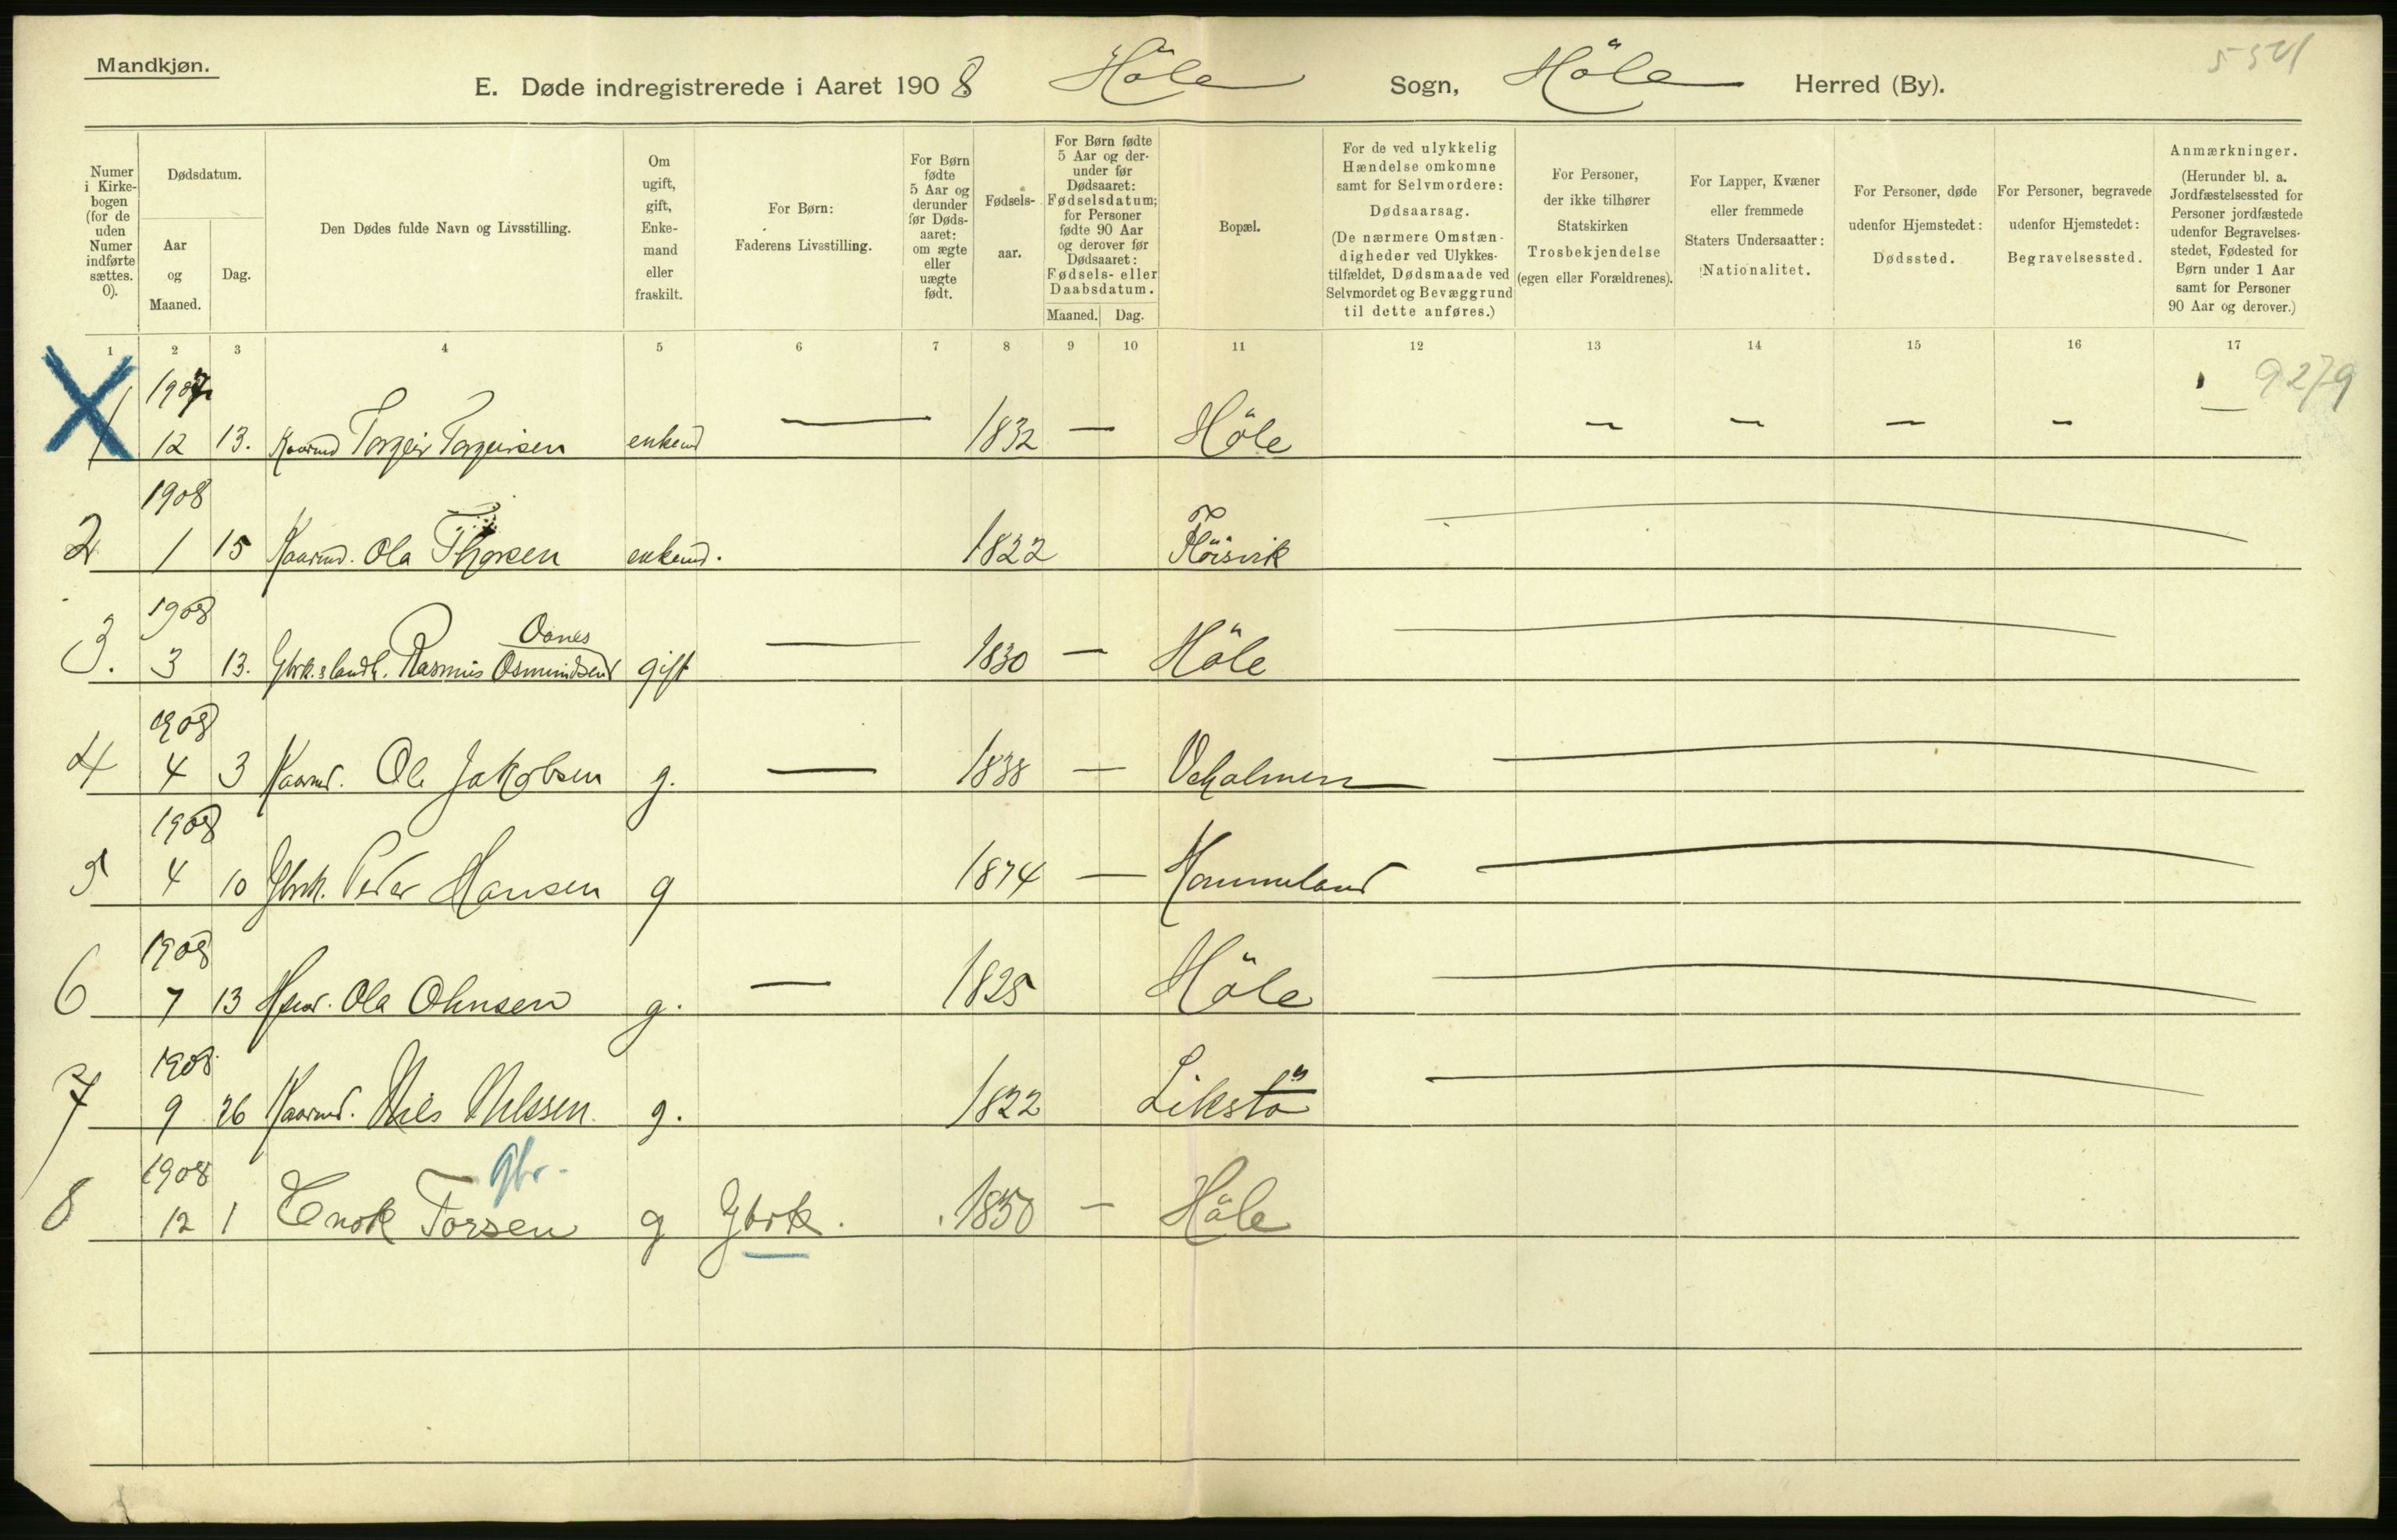 Mandkjøn.
5541
E. Døde indregistrerede i Aaret 1908 Höle Sogn, Höle Herred (By).
Numer i Kirkebogen (for de uden Numer indførte sættes. 0).
Dødsdatum.
Aar og Maaned.
Dag.
Den Dødes fulde Navn og Livsstilling.
Om ugift, gift, Enkemand eller fraskilt.
For Børn: Faderens Livsstilling.
For Børn fødte 5 Aar og derunder før Dødsaaret: om ægte eller uægte født.
Fødselsaar.
For Børn fødte 5 Aar og derunder før Dødsaaret: Fødselsdatum; for Personer fødte 90 Aar og derover før Dødsaaret: Fødsels- eller Daabsdatum.
Maaned. Dag.
Bopæl.
For de ved ulykkelig Hændelse omkomne samt for Selvmordere: Dødsaarsag. (De nærmere Omstændigheder ved Ulykkestilfældet, Dødsmaade ved Selvmordet og Bevæggrund til dette anføres.)
For Personer, der ikke tilhører Statskirken Trosbekjendelse (egen eller Forældrenes).
For Lapper, Kvæner eller fremmede Staters Undersaatter: Nationalitet.
For Personer, døde udenfor Hjemstedet: Dødssted.
For Personer, begravede udenfor Hjemstedet: Begravelsessted.
Anmærkninger. (Herunder bl. a. Jordfæstelsessted for Personer jordfæstede udenfor Begravelsesstedet, Fødested for Børn under 1 Aar samt for Personer 90 Aar og derover.)
1 2 3 4 5 6 7 8 9 10 11 12 13 14 15 16 17
9279
1907
1 12 13. Kaarmd Torgeir Torgeirsen enkemd — 1832 — Höle — — — — —
1908
2 1 15 Kaarmd. Ola Thorsen enkemd. 1822 Flöisvik
1908
Oanes
3. 3 13. Gbrk. & landh. Rasmus Osmundsen gift — 1830 — Höle
1908
4 4 3 Kaarmd. Ole Jakobsen g. — 1838 — Veholmen
1908
5 4 10 Gbrk. Peder Hansen g 1874 — Hommeland
1908
6 7 13 Ola Ohnsen g. — 1825 Höle
1908
7 9 26 Kaarmd. Nils Nilssen. g. 1822 Likstö
1908 Gbr.
8 12 1 Enok Torsen g Gbrk. 1850 — Höle